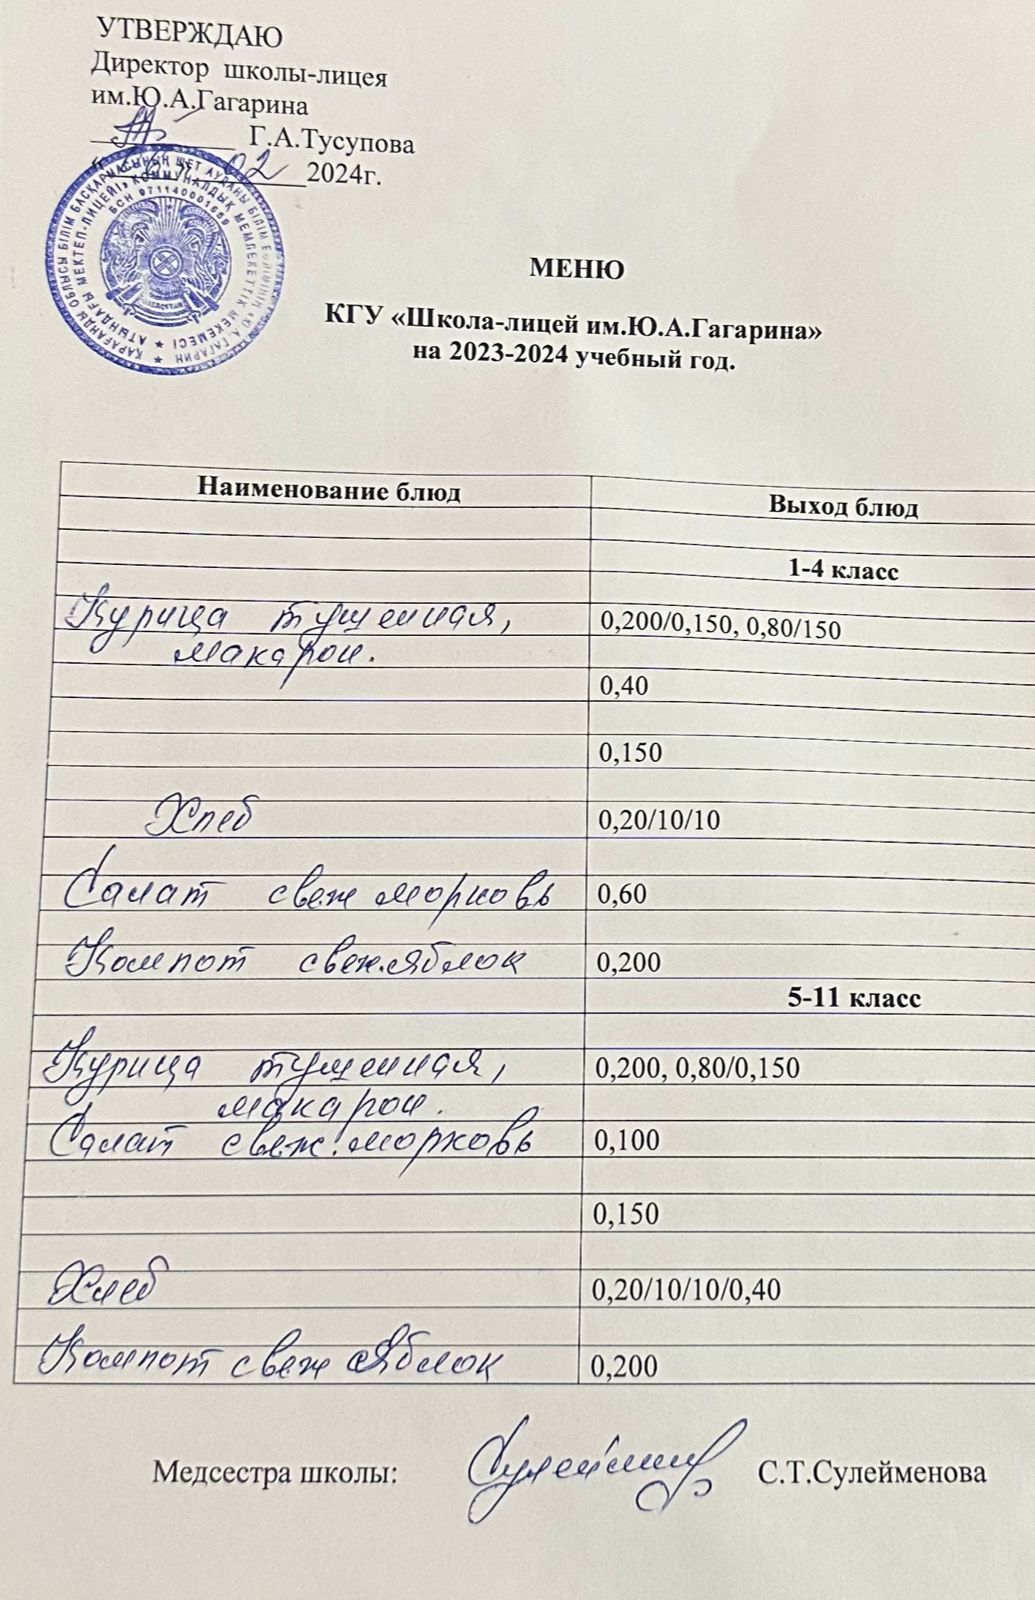 УТВЕРЖДАЮ
Директор школы-лицея
им.Ю.А.Гагарина
Г.А.Тусупова
02 2024г.
ҚАРАҒАНДЫ ОБЛЫСЫ БІЛІМ БАСҚАРМАСЫНЫҢ ШЕТ АУДАНЫ БІЛІМ БӨЛІМІНІҢ «Ю.А.ГАГАРИН
АТЫНДАҒЫ МЕКТЕП-ЛИЦЕЙІ» КОММУНАЛДЫҚ МЕМЛЕКЕТТІК МЕКЕМЕСІ
БСН 971140001659
МЕНЮ
КГУ «Школа-лицей им.Ю.А.Гагарина»
на 2023-2024 учебный год.
Наименование блюд Выход блюд
1-4 класс
Курица тушенная, 0,200/0,150, 0,80/150
макарон.
0,40
0,150
Хлеб 0,20/10/10
Салат свеж морковь 0,60
Компот свеж.яблок 0,200
5-11 класс
Курица тушенная, 0,200, 0,80/0,150
макарон.
Салат свеж.морковь 0,100
0,150
Хлеб 0,20/10/10/0,40
Компот свеж яблок 0,200
Медсестра школы: С.Т.Сулейменова